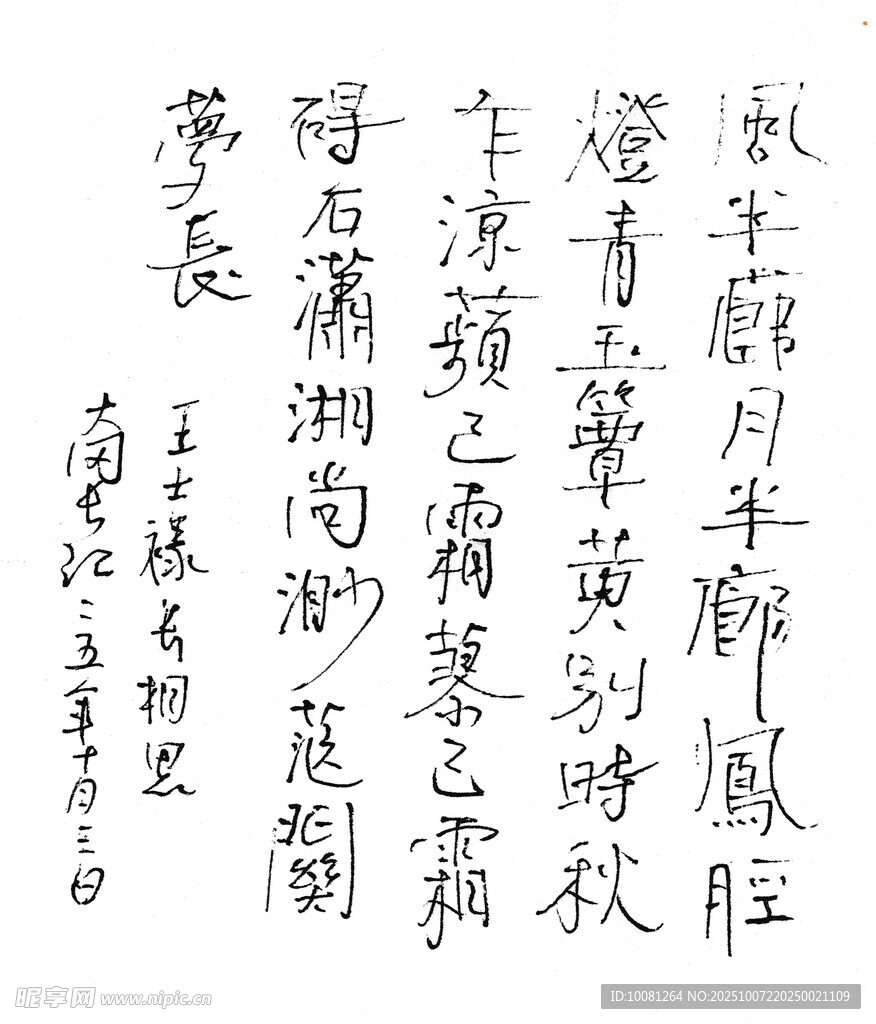 風半廊月半廊鳳脛
燈青玉簟黄别時秋
乍涼蘋已霜蓼已霜
碍石瀟湘尚渺茫關
夢長
王士禄长相思
南长江二五年十月三日
昵享网 www.nipic.cn
ID:10081264 NO:20251007220250021109